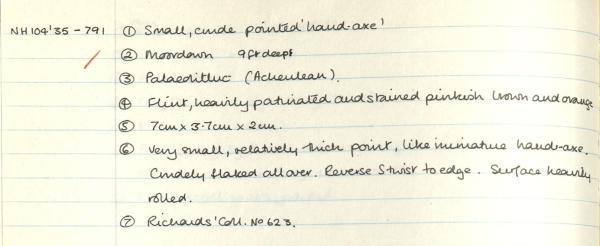 NH104'35 - 791 ① Small, crude pointed 'hand-axe'
② Moordown 9ft deep
③ Palaeolithic (Acheulean).
④ Flint, heavily patinated and stained pinkish brown and orange
⑤ 7cm x 3.7cm x 2cm.
⑥ Very small, relatively thick point, like miniature hand-axe.
Crudely flaked all over. Reverse S twist to edge. Surface heavily
rolled.
⑦ Richards' Coll. No 623.